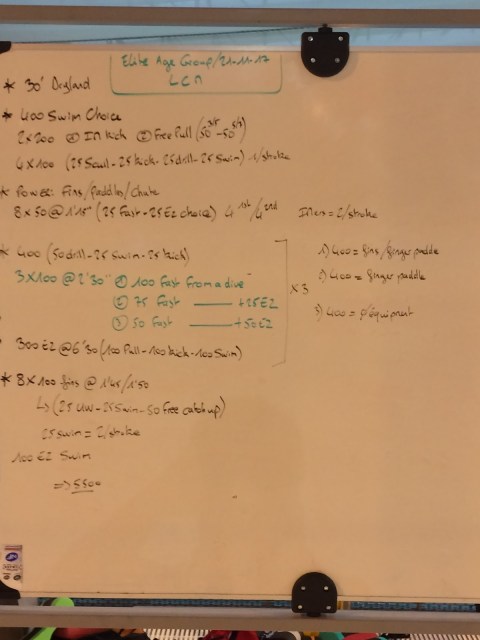 Elite Age Group/21-11-17
LCM
* 30' Dryland
* 400 Swim Choice
2x200 ① IM kick ② Free Pull (50 3/5 - 50 5/7)
4x100 (25 Scull - 25 kick - 25 drill - 25 Swim) 1/stroke
* Power: Fins/paddles/chute
8x50 @ 1'15" (25 Fast - 25 EZ choice) 4 1st/4 2nd
IMers = 2/stroke
* 400 (50 drill - 25 swim - 25 kick)
1) 400 = fins/finger paddle
3x100 @ 2'30" ① 100 Fast from a dive
2) 400 = finger paddle
② 75 Fast — +25EZ
x3
③ 50 Fast — +50EZ
3) 400 = Ø equipment
300 EZ @ 6'30 (100 Pull - 100 kick - 100 Swim)
* 8x100 fins @ 1'45/1'50
↳ (25 UW - 25 Swim - 50 Free catch up)
25 swim = 2/stroke
100 EZ Swim
=> 5500